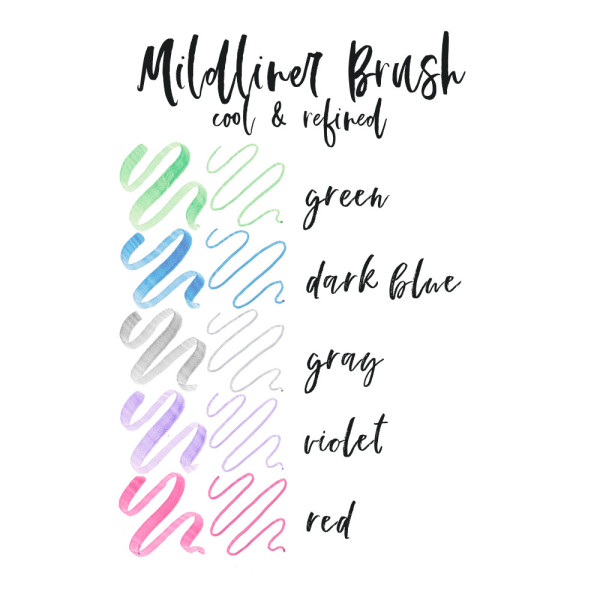 Mildliner Brush
cool & refined
green
dark blue
gray
violet
red